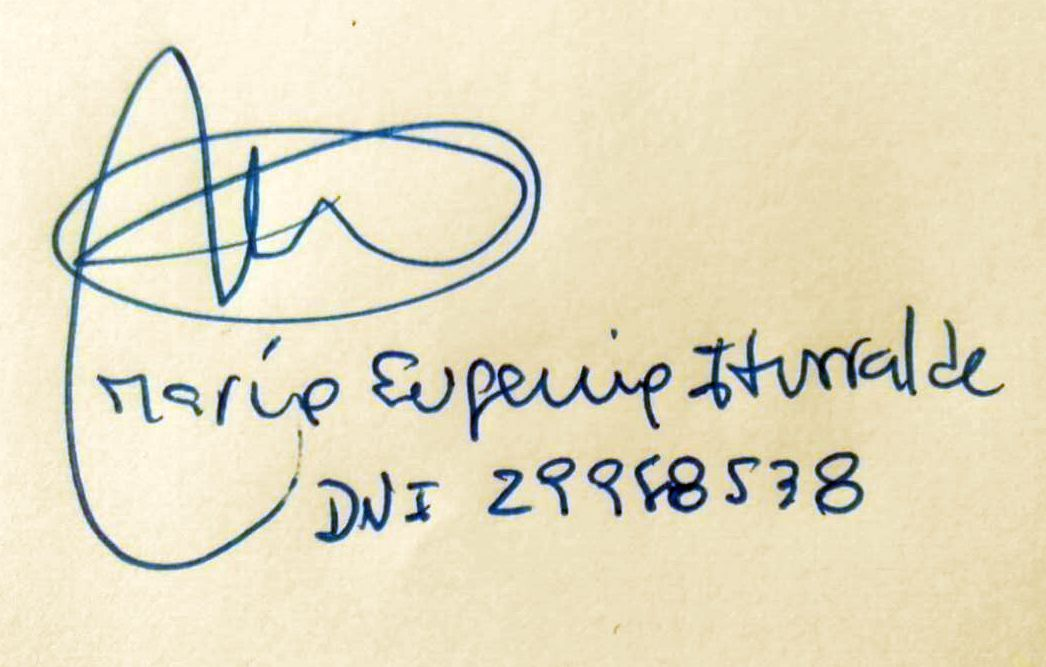 María Eugenia Iturralde
DNI 29958538